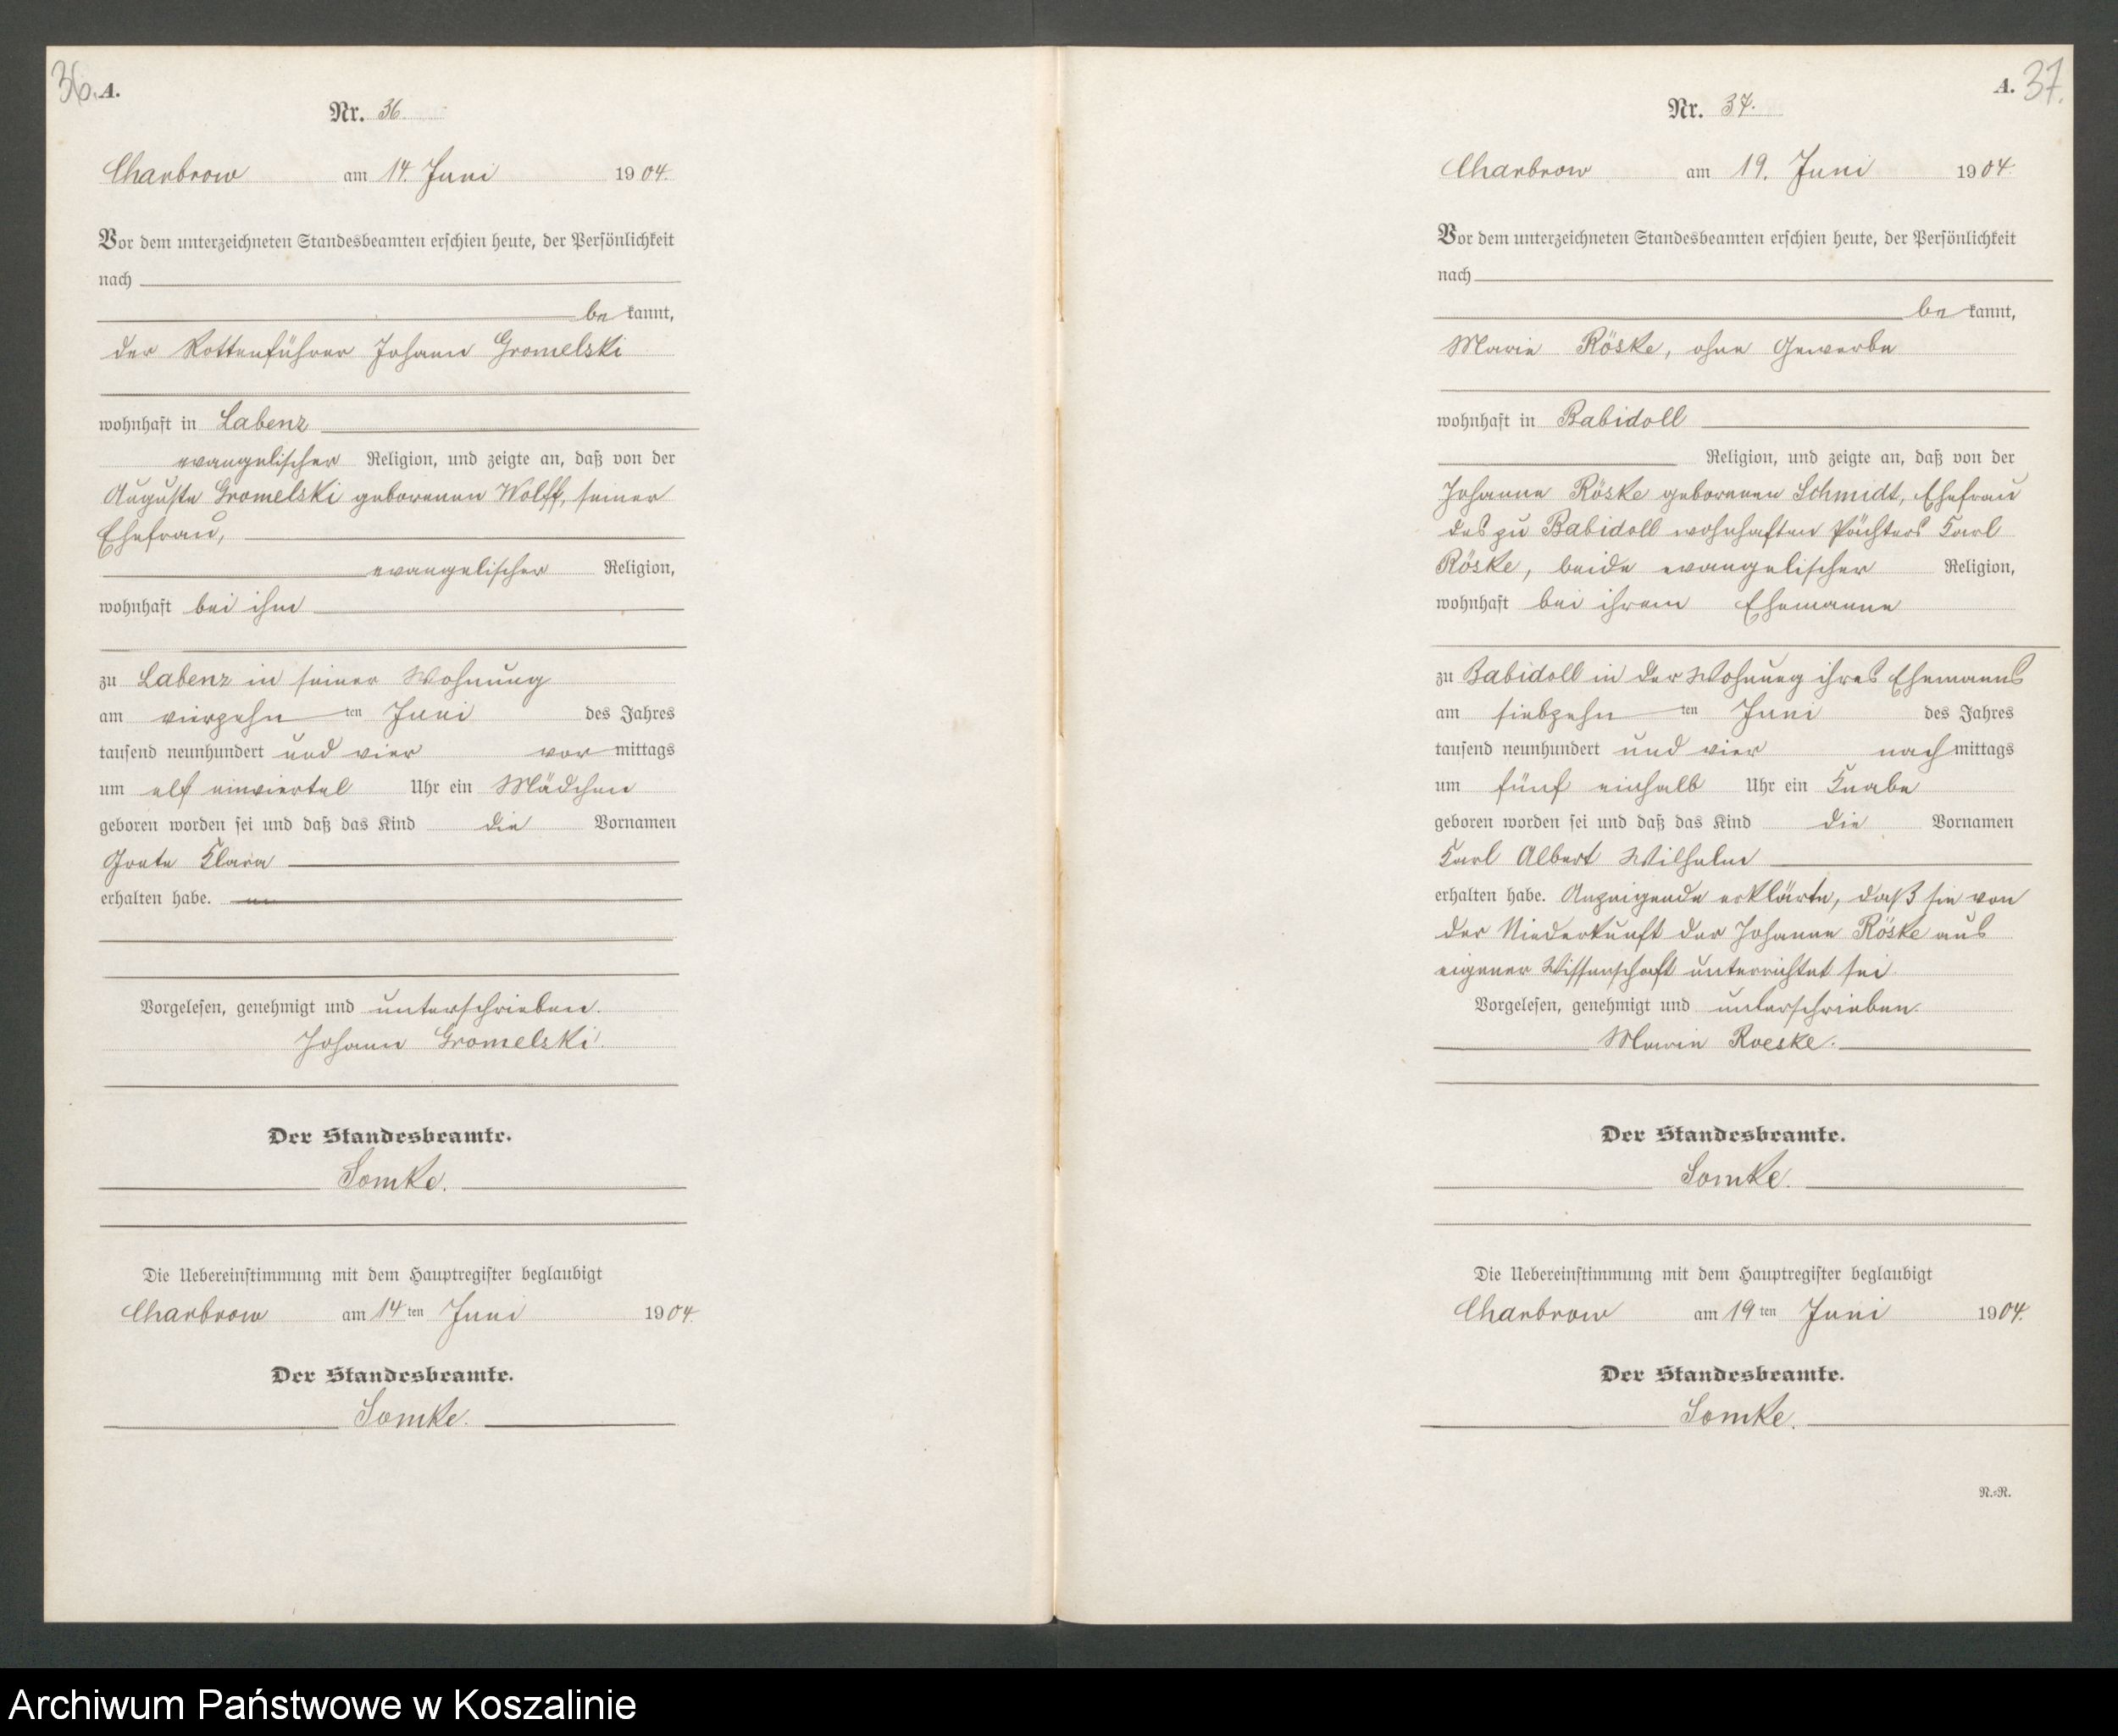 36. A.
Nr. 36.
Charbrow am 14. Juni 1904.
Vor dem unterzeichneten Standesbeamten erschien heute, der Persönlichkeit
nach
bekannt,
der Rottenführer Johann Gromelski
wohnhaft in Labenz
evangelischer Religion, und zeigte an, daß von der
Auguste Gromelski geborenen Wolff, seiner
Ehefrau,
evangelischer Religion,
wohnhaft bei ihm
zu Labenz in seiner Wohnung
am vierzehn ten Juni des Jahres
tausend neunhundert und vier vor mittags
um elf einviertel Uhr ein Mädchen
geboren worden sei und daß das Kind die Vornamen
Grete Klara
erhalten habe.
Vorgelesen, genehmigt und unterschrieben.
Johann Gromelski.
Der Standesbeamte.
Somke.
Die Uebereinstimmung mit dem Hauptregister beglaubigt
Charbrow am 14ten Juni 1904.
Der Standesbeamte.
Somke.
A. 37.
Nr. 37.
Charbrow am 19. Juni 1904.
Vor dem unterzeichneten Standesbeamten erschien heute, der Persönlichkeit
nach
bekannt,
Marie Röske, ohne Gewerbe
wohnhaft in Babidoll
Religion, und zeigte an, daß von der
Johanne Röske geborenen Schmidt, Ehefrau
des zu Babidoll wohnhaften Pächters Karl
Röske, beide evangelischer Religion,
wohnhaft bei ihrem Ehemanne
zu Babidoll in der Wohnung ihres Ehemanns
am siebzehn ten Juni des Jahres
tausend neunhundert und vier nach mittags
um fünf einhalb Uhr ein Knabe
geboren worden sei und daß das Kind die Vornamen
Karl Albert Wilhelm
erhalten habe. Anzeigende erklärte, daß sie von
der Niederkunft der Johanne Röske aus
eigener Wissenschaft unterrichtet sei.
Vorgelesen, genehmigt und unterschrieben.
Marie Roeske.
Der Standesbeamte.
Somke.
Die Uebereinstimmung mit dem Hauptregister beglaubigt
Charbrow am 19ten Juni 1904.
Der Standesbeamte.
Somke.
R.=R.
Archiwum Państwowe w Koszalinie